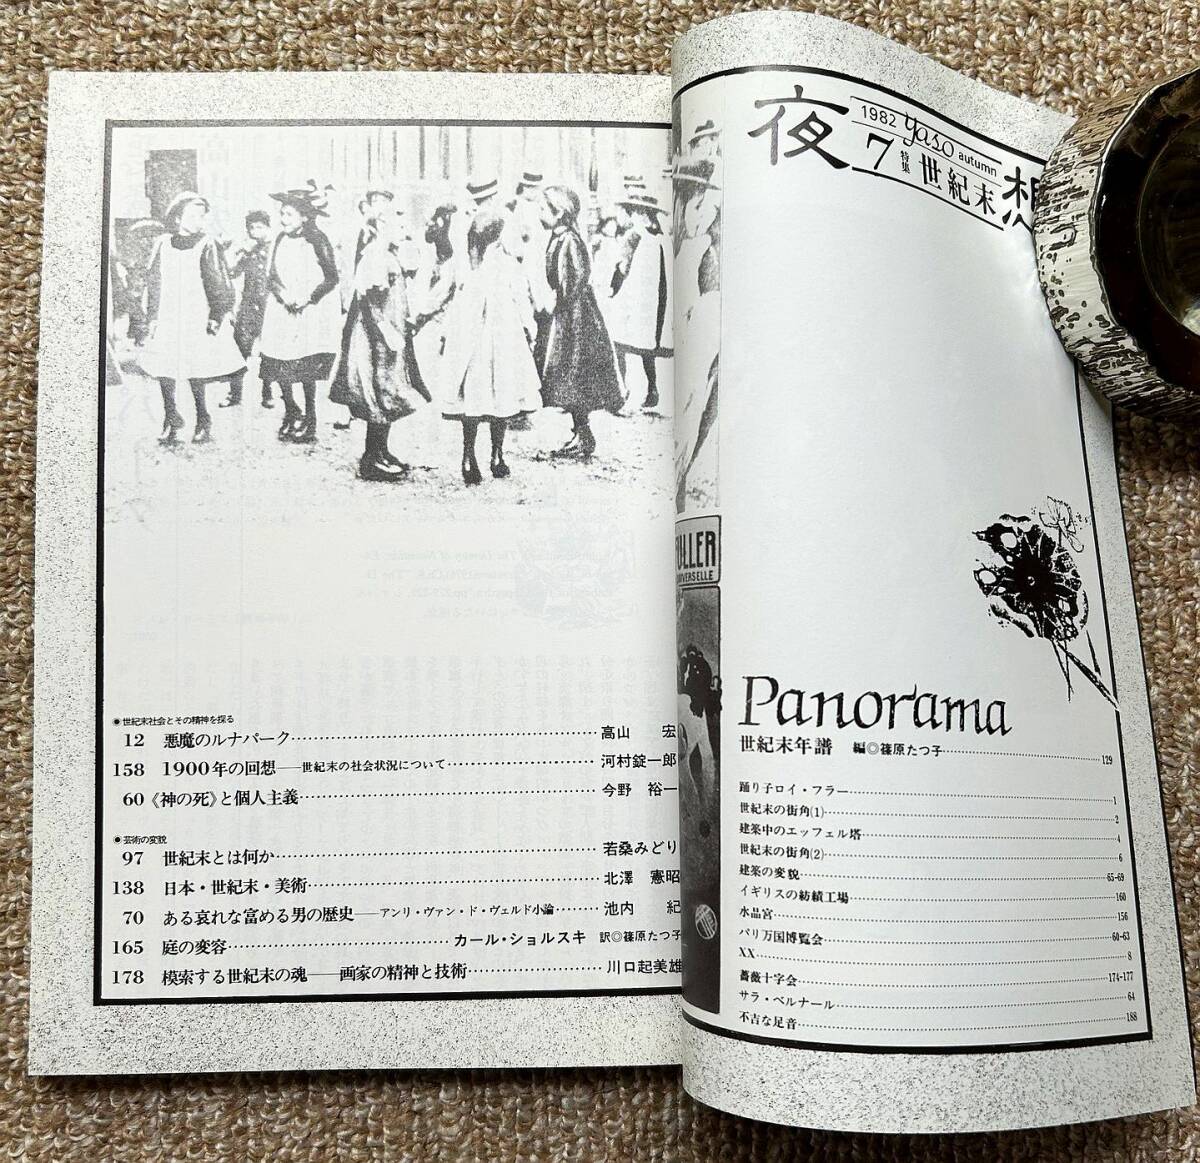 ●世紀末社会とその精神を探る
12 悪魔のルナパーク……高山 宏
158 1900年の回想——世紀末の社会状況について……河村錠一郎
60 《神の死》と個人主義……今野 裕一
●芸術の変貌
97 世紀末とは何か……若桑みどり
138 日本・世紀末・美術……北澤 憲昭
70 ある哀れな富める男の歴史——アンリ・ヴァン・ド・ヴェルド小論……池内 紀
165 庭の変容……カール・ショルスキ 訳◎篠原たつ子
178 模索する世紀末の魂——画家の精神と技術……川口起美雄
夜想
1982 yaso autumn
7 特集 世紀末
FULLER
UNIVERSELLE
Panorama
世紀末年譜 編◎篠原たつ子……129
踊り子ロイ・フラー……1
世紀末の街角(1)……2
建築中のエッフェル塔……4
世紀末の街角(2)……6
建築の変貌……65-69
イギリスの紡績工場……160
水晶宮……156
パリ万国博覧会……60-63
XX……8
薔薇十字会……174-177
サラ・ベルナール……64
不吉な足音……188